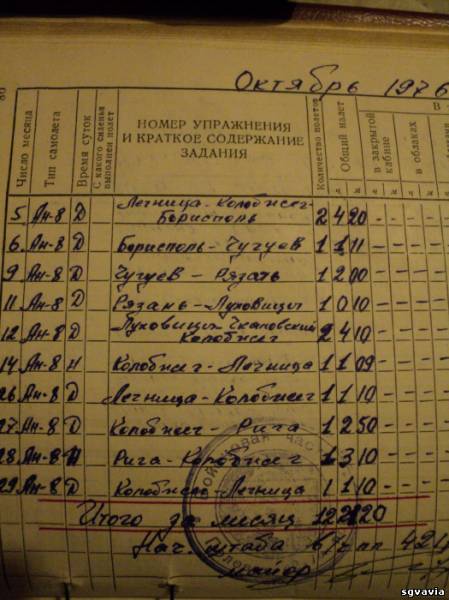 Октябрь 1976
80
Число месяца
Тип самолета
Время суток
С какого сиденья выполнен полет
НОМЕР УПРАЖНЕНИЯ
И КРАТКОЕ СОДЕРЖАНИЕ
ЗАДАНИЯ
Количество полетов
Общий налет
в закрытой кабине
в облаках
В
5 Ан-8 Д Легница-Колобжег- Борисполь 2 4 20 - - - -
6. Ан-8 Д Борисполь-Чугуев 1 1 11 - - - -
9 Ан-8 Д Чугуев - Рязань 1 2 00 - - - -
11 Ан-8 Д Рязань-Луховицы 1 0 10 - - - -
12 Ан-8 Д Луховицы-Чкаловский Колобжег 2 4 10 - - - -
14 Ан-8 Н Колобжег-Легница 1 1 09 - - - -
26 Ан-8 Д Легница-Колобжег 1 1 10 - - - -
27. Ан-8 Д Колобжег-Рига 1 2 50 - - - -
28. Ан-8 Н Рига-Колобжег 1 3 10 - - - -
29. Ан-8 Д Колобжег-Легница 1 1 10 - - - -
Итого за месяц 12
Нач. штаба
майор
sgvavia